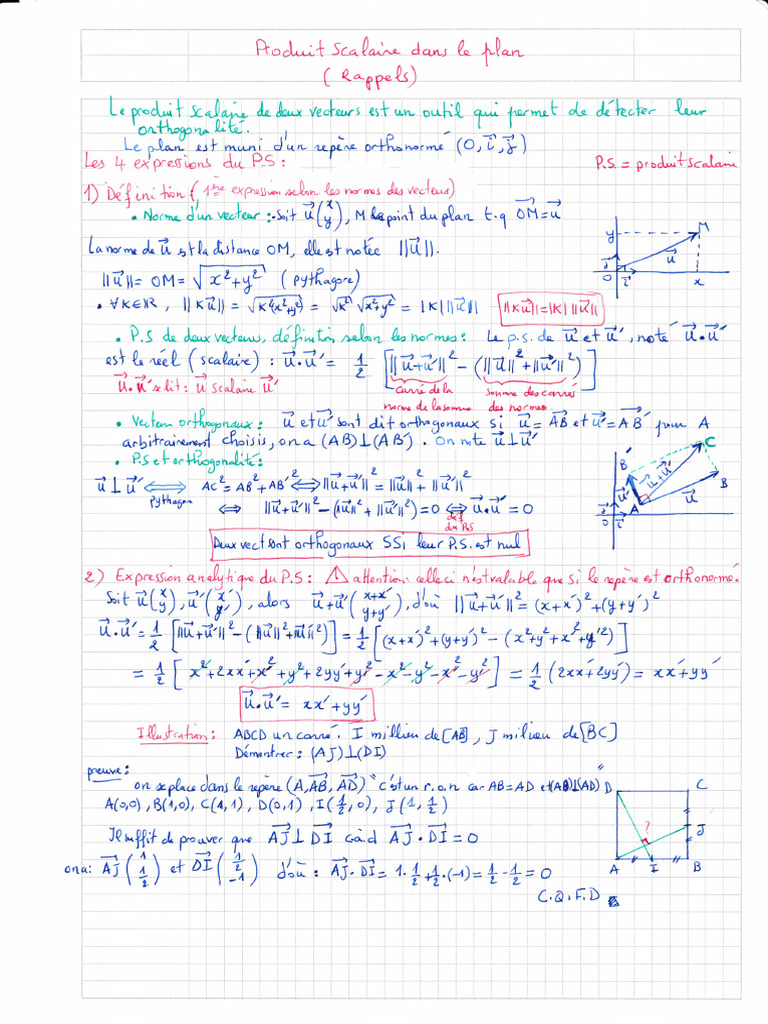 Produit scalaire dans le plan
(Rappels)
Le produit scalaire de deux vecteurs est un outil qui permet de détecter leur
orthogonalité.
Le plan est muni d'un repère orthonormé (O, i⃗, j⃗)
Les 4 expressions du P.S : P.S. = produit scalaire
1) Définition (1ère expression selon les normes des vecteurs)
• Norme d'un vecteur : Soit u⃗(x y), M le point du plan t.q OM⃗ = u⃗
La norme de u⃗ est la distance OM, elle est notée ||u⃗||.
||u⃗|| = OM = √(x²+y²) (pythagore)
• ∀K∈ℝ, ||Ku⃗|| = √(K²(x²+y²)) = √K² √(x²+y²) = |K| ||u⃗|| ||Ku⃗|| = |K| ||u⃗||
y M u⃗ j⃗ O i⃗ x
• P.S de deux vecteurs, définition selon les normes : Le p.s. de u⃗ et u⃗′, noté u⃗•u⃗′
est le réel (scalaire) : u⃗•u⃗′ = 1/2 [||u⃗+u⃗′||² − (||u⃗||² + ||u⃗′||²)]
u⃗•u⃗′ se lit : u⃗ scalaire u⃗′ carré de la somme des carrés
norme de la somme des normes
• Vecteurs orthogonaux : u⃗ et u⃗′ sont dit orthogonaux si u⃗ = AB⃗ et u⃗′ = AB′⃗ pour A
arbitrairement choisis, on a (AB)⊥(AB′). On note u⃗⊥u⃗′
• P.S et orthogonalité :
u⃗⊥u⃗′ ⟺ AC² = AB² + AB′² ⟺ ||u⃗+u⃗′||² = ||u⃗||² + ||u⃗′||²
pythagore
⟺ ||u⃗+u⃗′||² − (||u⃗||² + ||u⃗′||²) = 0 ⟺ u⃗•u⃗′ = 0
def du P.S
C B′ u⃗+u⃗′ B u⃗′ u⃗ A j⃗ O i⃗
Deux vect sont orthogonaux SSi leur P.S. est nul
2) Expression analytique du P.S : ⚠ attention celleci n'est valable que si le repère est orthonormé.
Soit u⃗(x y), u⃗′(x′ y′), alors u⃗+u⃗′(x+x′ y+y′), d'où ||u⃗+u⃗′||² = (x+x′)² + (y+y′)²
u⃗•u⃗′ = 1/2 [||u⃗+u⃗′||² − (||u⃗||² + ||u⃗′||²)] = 1/2 [(x+x′)² + (y+y′)² − (x²+y²+x′²+y′²)]
= 1/2 [x²+2xx′+x′²+y²+2yy′+y′²−x²−y²−x′²−y′²] = 1/2 (2xx′+2yy′) = xx′+yy′
u⃗•u⃗′ = xx′+yy′
Illustration : ABCD un carré. I millieu de [AB], J milieu de [BC]
Démontrer : (AJ)⊥(DI)
preuve :
on se place dans le repère (A, AB⃗, AD⃗) c'est un r.o.n car AB=AD et (AB)⊥(AD)
A(0,0), B(1,0), C(1,1), D(0,1), I(1/2,0), J(1,1/2)
Il suffit de prouver que AJ⃗⊥DI⃗ càd AJ⃗•DI⃗ = 0
on a : AJ⃗(1 1/2) et DI⃗(1/2 −1) d'où : AJ⃗•DI⃗ = 1·1/2 + 1/2·(−1) = 1/2 − 1/2 = 0
C.Q.F.D
D C ? J A I B